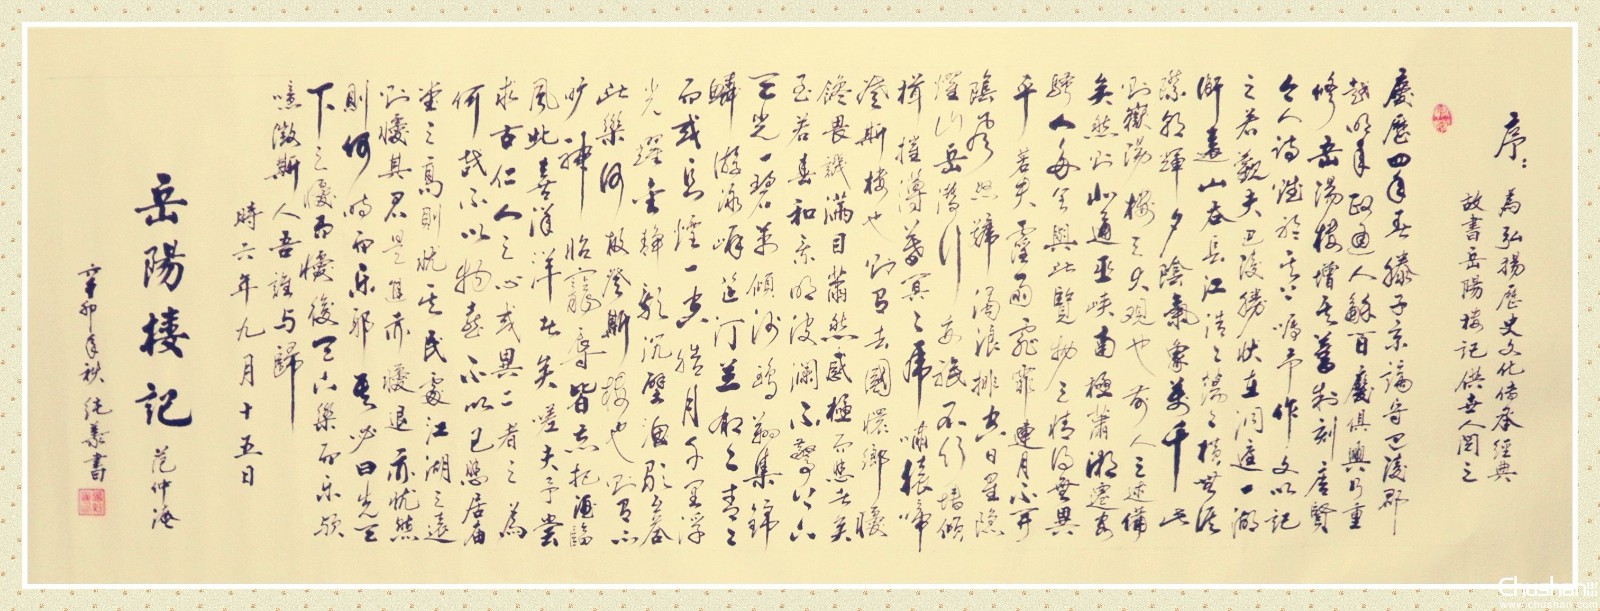 序：
為弘揚歷史文化傳承經典
故書岳陽樓記供世人閱之
慶歷四年春滕子京謫守巴陵郡
越明年政通人和百廢俱興乃重
修岳陽樓增其舊制刻唐賢
今人詩賦於其上囑予作文以記
之若觀夫巴陵勝狀在洞庭一湖
銜遠山吞長江浩々湯々橫無涯
際朝輝夕陰氣象萬千此
則嶽陽樓之大观也前人之述備
矣然則北通巫峽南極瀟湘遷客
騷人多會與此覽物之情得無異
乎若夫霪雨霏霏連月不開
陰風怒號濁浪排空日星隱
耀山岳潛行商旅不行檣傾
楫摧薄暮冥々虎嘯猿啼
登斯樓也則有去國懷鄉憂
讒畏譏滿目蕭然感極而悲者矣
至若春和景明波瀾不驚上下
天光一碧萬傾沙鷗翔集錦
鱗游泳岸芷汀兰郁々青々
而或長煙一空皓月千里浮
光躍金靜影沉璧漁歌互答
此樂何極登斯樓也則有心
旷神怡寵辱皆忘把酒臨
風其喜洋洋者矣嗟夫予嘗
求古仁人之心或異二者之為
何哉不以物喜不以己悲居廟
堂之高則憂其民處江湖之遠
則憂其君是進亦憂退亦憂然
則何時而乐耶其必曰先天
下之憂而憂後天下樂而乐歟
噫微斯人吾誰与歸
時六年九月十五日
岳陽樓記
范仲淹
辛卯年秋純義書
Chushan
www.chushan.com